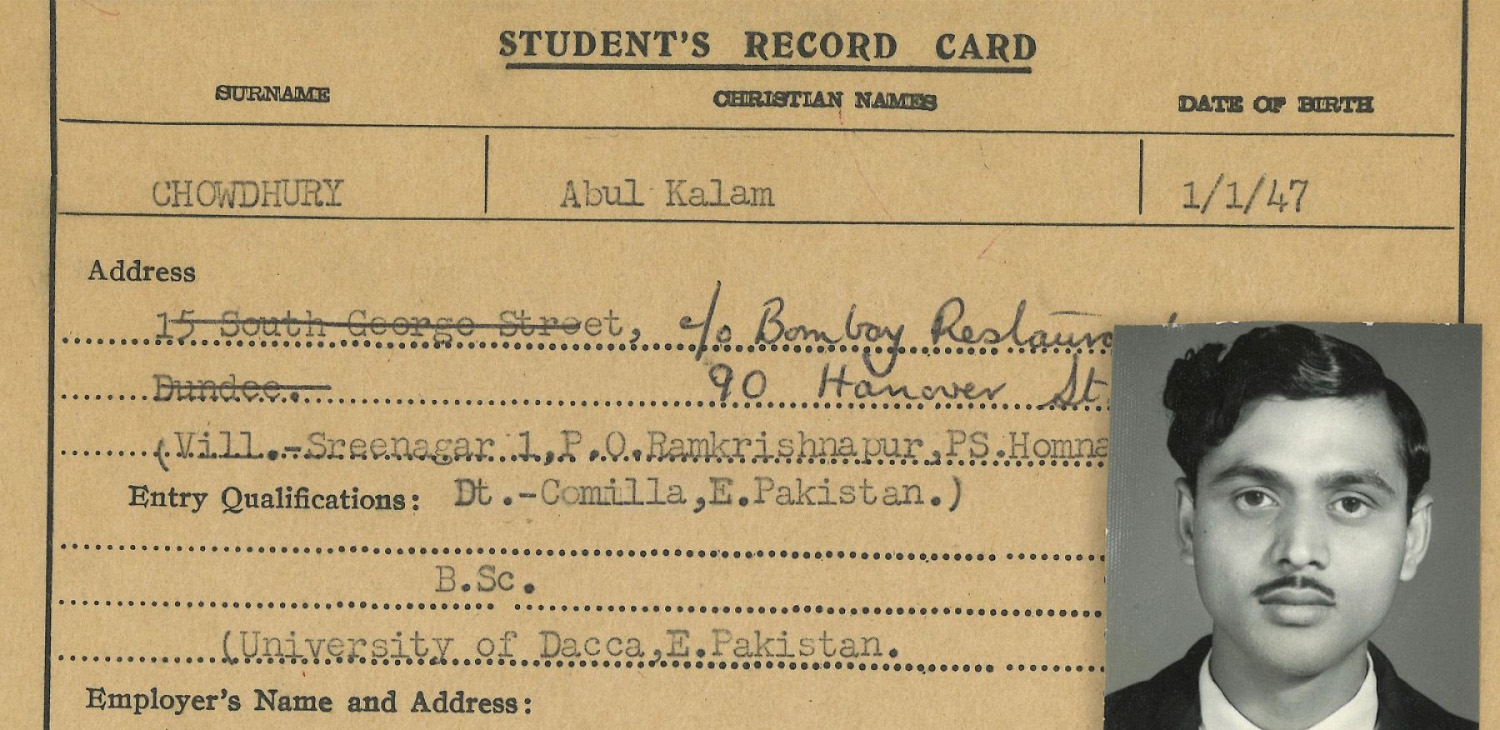 STUDENT'S RECORD CARD
SURNAME CHRISTIAN NAMES DATE OF BIRTH
CHOWDHURY Abul Kalam 1/1/47
Address
15 South George Street, c/o Bombay
Dundee. 90 Hanover St
(Vill.-Sreenagar 1,P.O.Ramkrishnapur,PS.Homna
Entry Qualifications: Dt.-Comilla,E.Pakistan.)
B.Sc.
(University of Dacca,E.Pakistan.
Employer's Name and Address: